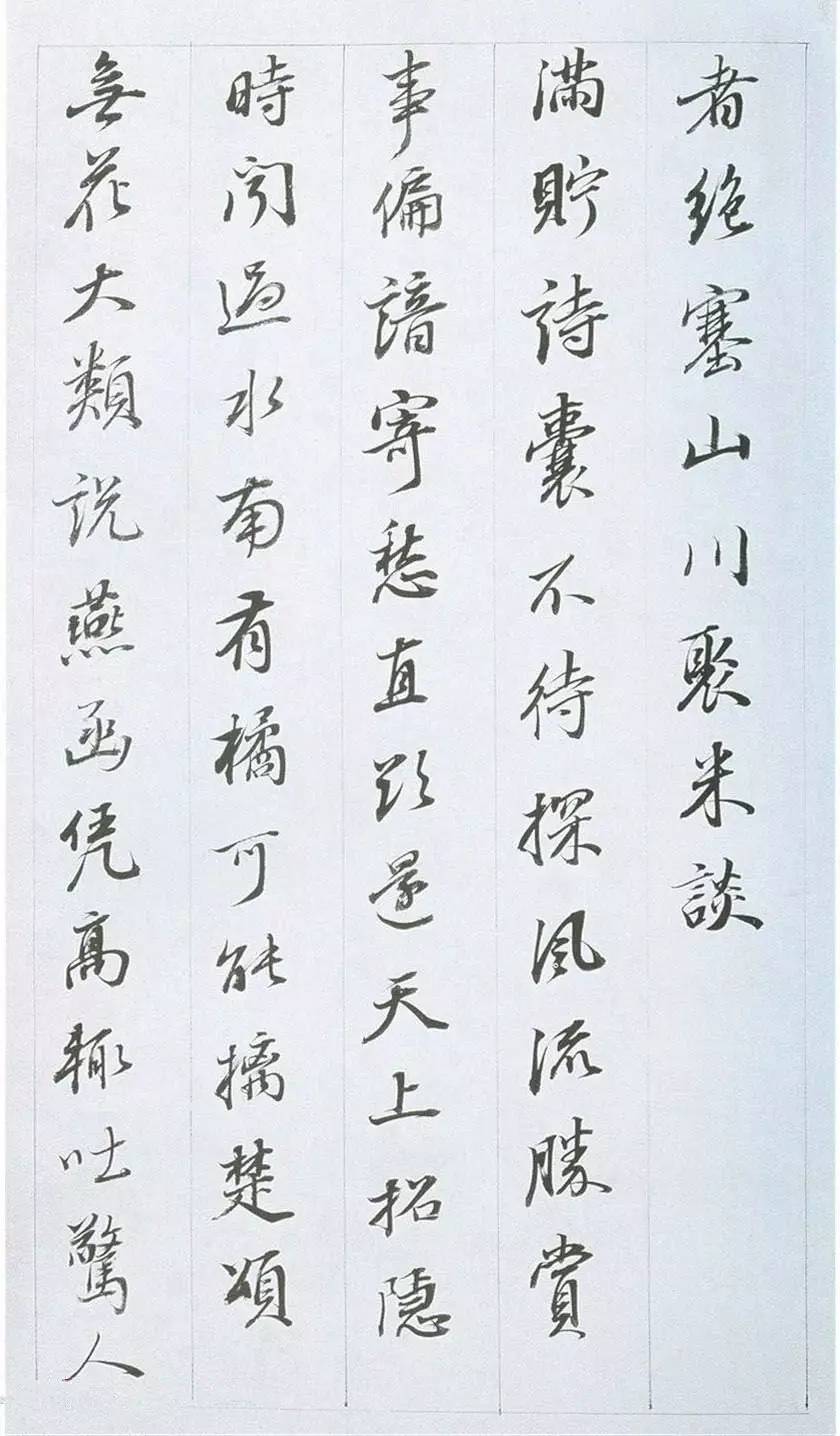 者絶塞山川聚米談
滿貯詩囊不待探風流勝賞
事偏諳寄愁直欲還天上招隱
時聞過水南有橘可能摛楚頌
無花大類説燕函凭高輙吐驚人